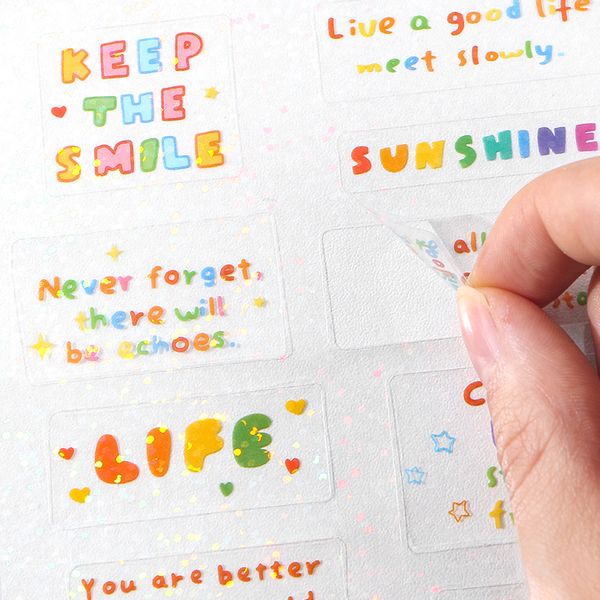 KEEP
THE
SMILE
Live a good life
meet slowly.
SUNSHINE
Never forget,
there will
be echoes..
all
LIFE
You are better